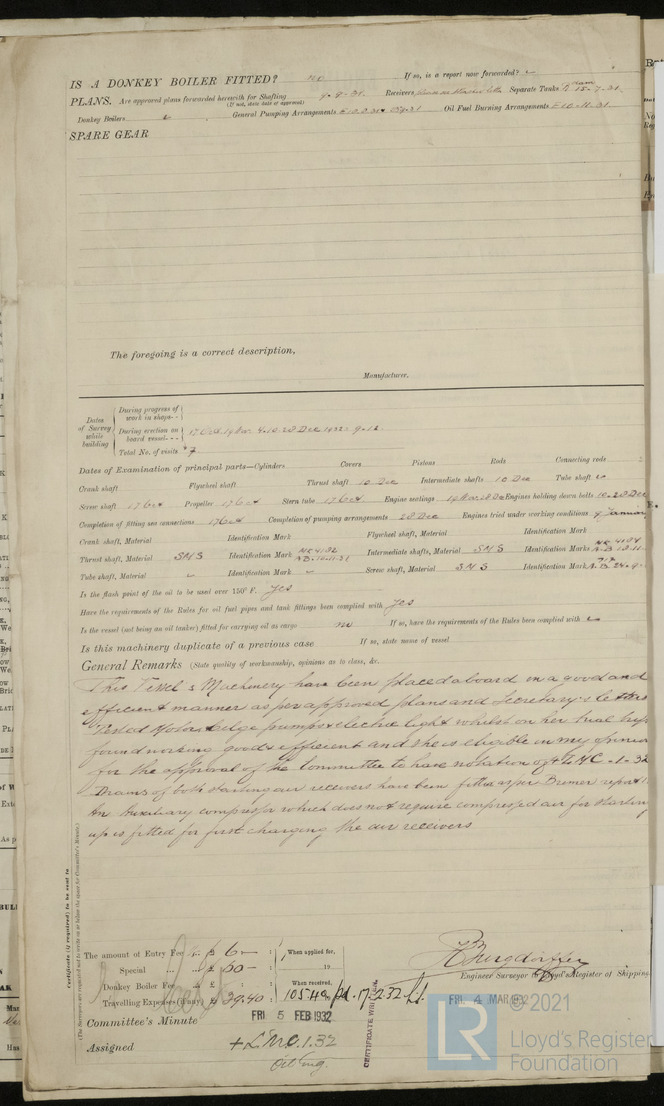 IS A DONKEY BOILER FITTED? no If so, is a report now forwarded?
PLANS. Are approved plans forwarded herewith for Shafting 9-9-31 Receivers Separate Tanks 15-7-31
(If not, state date of approval)
Donkey Boilers General Pumping Arrangements Oil Fuel Burning Arrangements E 10-11-31
SPARE GEAR
The foregoing is a correct description,
Manufacturer.
Dates of Survey while building
During progress of work in shops--
During erection on board vessel--- 17 Oct. 19 Nov. 4.10.28 Dec 1932: 9.12
Total No. of visits 7
Dates of Examination of principal parts—Cylinders Covers Pistons Rods Connecting rods
Crank shaft Flywheel shaft Thrust shaft 10 Dec Intermediate shafts 10 Dec Tube shaft
Screw shaft 17 Oct Propeller 17 Oct Stern tube 17 Oct Engine seatings 19 Nov 28 Dec Engines holding down bolts 10-28 Dec
Completion of fitting sea connections 17 Oct Completion of pumping arrangements 28 Dec Engines tried under working conditions 9 January
Crank shaft, Material Identification Mark Flywheel shaft, Material Identification Mark
Thrust shaft, Material SMS Identification Mark Intermediate shafts, Material SMS Identification Marks
Tube shaft, Material Identification Mark Screw shaft, Material SMS Identification Mark
Is the flash point of the oil to be used over 150° F. Yes
Have the requirements of the Rules for oil fuel pipes and tank fittings been complied with Yes
Is the vessel (not being an oil tanker) fitted for carrying oil as cargo no If so, have the requirements of the Rules been complied with
Is this machinery duplicate of a previous case If so, state name of vessel
General Remarks (State quality of workmanship, opinions as to class, &c.
This Vessel's Machinery have been placed aboard in a good and
efficient manner as per approved plans and Secretary's letters
Tested Motors bilge pumps & electric light whilst on her trial trip
found working good & efficient and she is eligible in my opinion
for the approval of the Committee to have notation of + LMC -1-32
Drains of both starting air receivers have been fitted as per Bremer report
An Auxiliary compressor which does not require compressed air for starting
up is fitted for first charging the air receivers
Certificate (if required) to be sent to
(The Surveyors are requested not to write on or below the space for Committee's Minute.)
The amount of Entry Fee .. £ 6 - : When applied for,
Special ... ... £ 60 - : 19
Donkey Boiler Fee ... £ : When received,
Travelling Expenses (if any) £ 39.40 : 105.40
Engineer Surveyor to Lloyd's Register of Shipping
FRI 5 FEB 1932
FRI. 4 MAR 1932
Committee's Minute
Assigned + LMC. 1.32
Oil Eng.
CERTIFICATE WRITTEN
LR
© 2021
Lloyd's Register
Foundation